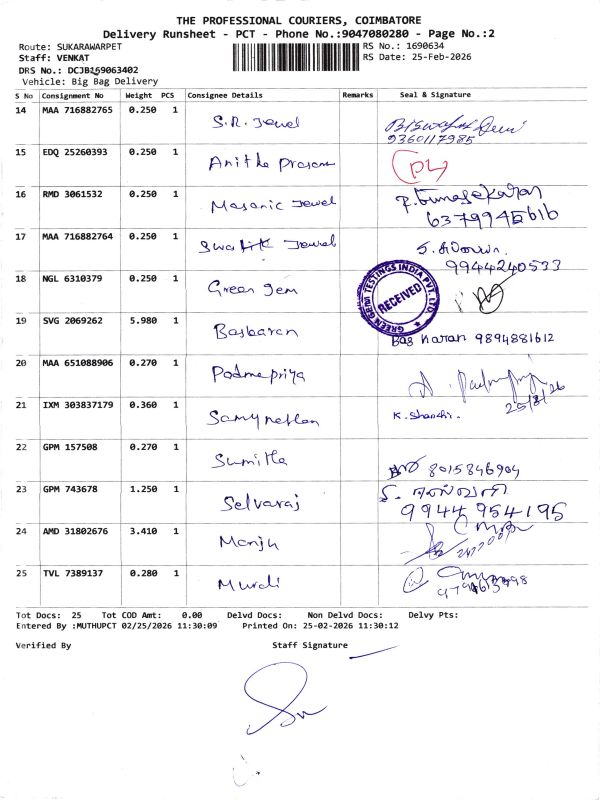 THE PROFESSIONAL COURIERS, COIMBATORE
Delivery Runsheet - PCT - Phone No.:9047080280 - Page No.:2
Route: SUKARAWARPET RS No.: 1690634
Staff: VENKAT RS Date: 25-Feb-2026
DRS No.: DCJB169063402
Vehicle: Big Bag Delivery
S No Consignment No Weight PCS Consignee Details Remarks Seal & Signature
14 MAA 716882765 0.250 1 S.R. Jewel
9360117985
15 EDQ 25260393 0.250 1 Anitha Prasana
16 RMD 3061532 0.250 1 Masanic Jewel P. Gunasekaran
17 MAA 716882764 0.250 1 Swatik Jewel
9944240533
18 NGL 6310379 0.250 1 Green Gem
GREEN GEM TESTINGS INDIA PVT. LTD
RECEIVED
19 SVG 2069262 5.980 1 Basbaran Bas Karan 9894881612
20 MAA 651088906 0.270 1 Padmapriya
21 IXM 303837179 0.360 1 K. Shanthi.
22 GPM 157508 0.270 1 Sumitha 8015846904
23 GPM 743678 1.250 1 Selvaraj
9944954195
24 AMD 31802676 3.410 1 Manju
25 TVL 7389137 0.280 1 Murali
Tot Docs: 25 Tot COD Amt: 0.00 Delvd Docs: Non Delvd Docs: Delvy Pts:
Entered By :MUTHUPCT 02/25/2026 11:30:09 Printed On: 25-02-2026 11:30:12
Verified By Staff Signature